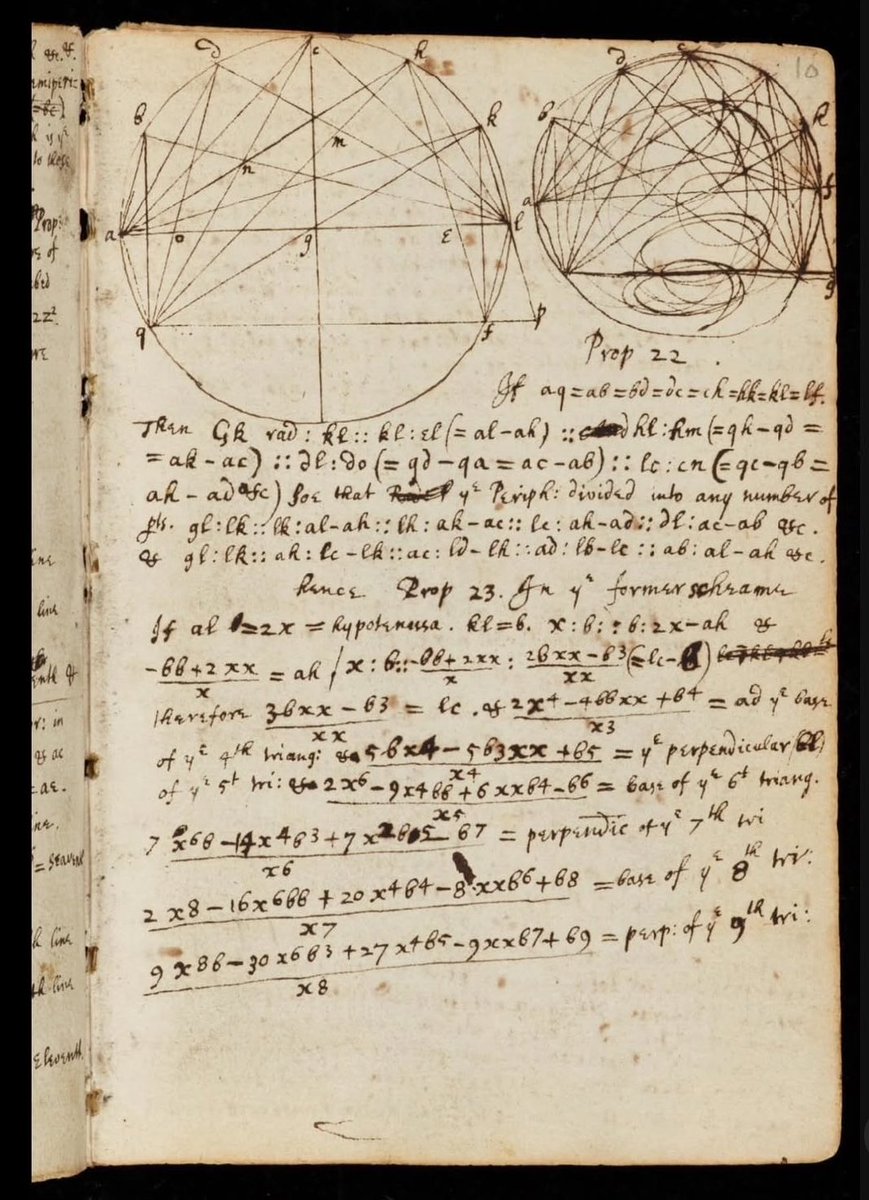 10
d c h
b k
n m
a o g E l
q f p
d c
b k
a f
g
Prop 22.
If aq=ab=bd=dc=ch=hk=kl=lf.
Then Gk rad: kl:: kl: El (= al-ah) :: hl: hm (= qh-qd =
= ak-ac) :: dl: do (= qd-qa = ac-ab) :: lc: cn (= qc-qb =
ah-ad &c) soe that yᵉ Periph: divided into any number of
pts. gl:lk::lk:al-ah::lh:ak-ac::lc:ah-ad::dl:ac-ab &c.
& gl:lk::ak:lc-lk::ac:ld-lh::ad:lb-lc::ab:al-ah &c.
hence Prop 23. In yᵉ former scheame
If al =2x = hypotenusa. kl=b. x:b::b:2x-ah &
-bb+2xx/x = ah / x:b::-bb+2xx/x : 2bxx-b3/xx (=lc-b)
therefore 3bxx-b3/xx = lc. & 2x4-4bbxx+b4/x3 = ad yᵉ base
of yᵉ 4th triang: & 5bx4-5b3xx+b5/x4 = yᵉ perpendicular (bl)
of yᵉ 5t tri: & 2x6-9x4bb+6xxb4-b6/x5 = base of yᵉ 6t triang.
7x6b-14x4b3+7x2b5-b7/x6 = perpendic of yᵉ 7th tri
2x8-16x6bb+20x4b4-8xxb6+b8/x7 = base of yᵉ 8th tri:
9x8b-30x6b3+27x4b5-9xxb7+b9/x8 = perp: of yᵉ 9th tri: